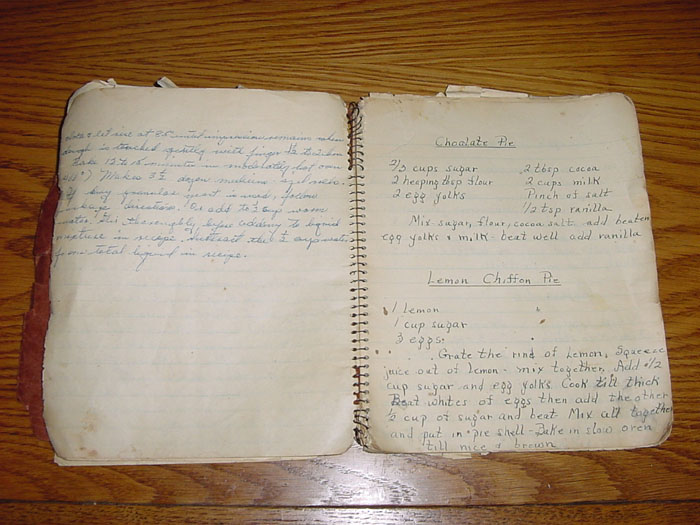 let rise at 85° until impression remains when
dough is touched gently with finger to 2 hrs.
Bake 12 to 15 minutes in moderately hot oven
Makes 3½ dozen medium
If dry granular yeast is used, follow
package directions. Or add to ½ cup warm
water, stir thoroughly before adding to liquid
mixture in recipe. Subtract the ½ cup water
from total liquid in recipe.
Choclate Pie
2/3 cups sugar 2 tbsp cocoa
2 heaping tbsp flour 2 cups milk
2 egg yolks Pinch of salt
1/2 tsp vanilla
Mix sugar, flour, cocoa salt. add beaten
egg yolks & milk - beat well add vanilla
Lemon Chiffon Pie
1 lemon
1 cup sugar
3 eggs.
Grate the rind of Lemon, Squeeze
juice out of Lemon - mix together. Add 1/2
cup sugar and egg yolks Cook till thick
Beat whites of eggs then add the other
½ cup of sugar and beat Mix all together
and put in pie shell - Bake in slow oven
till nice & brown